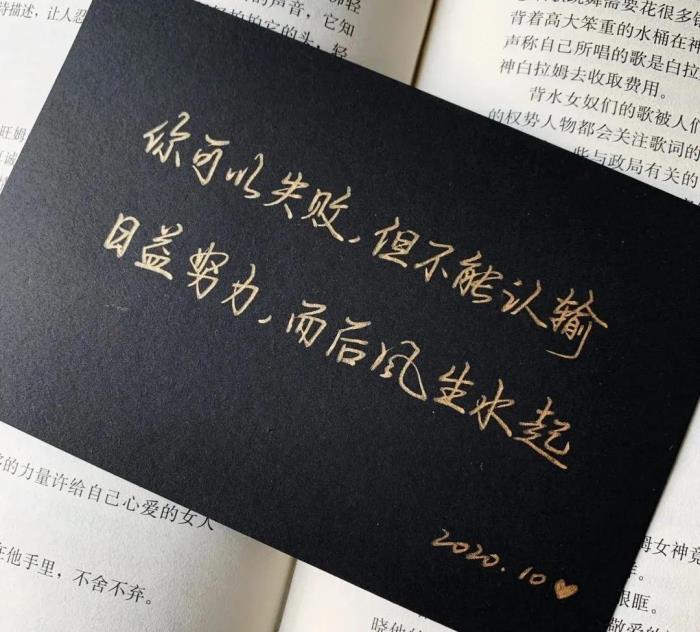 诗描述，让人忍
的声音，它知
轻拍拍它的头，轻
背着高大笨重的水桶在神
声称自己所唱的歌是白拉
神白拉姆去收取费用。
背水女奴们的歌被人们
的权势人物都会关注歌词的
些与政局有关的
你可以失败，但不能认输
日益努力，而后风生水起
2020.10♥
的力量许给自己心爱的女人
在他手里，不舍不弃。
姆女神竟
很眶。